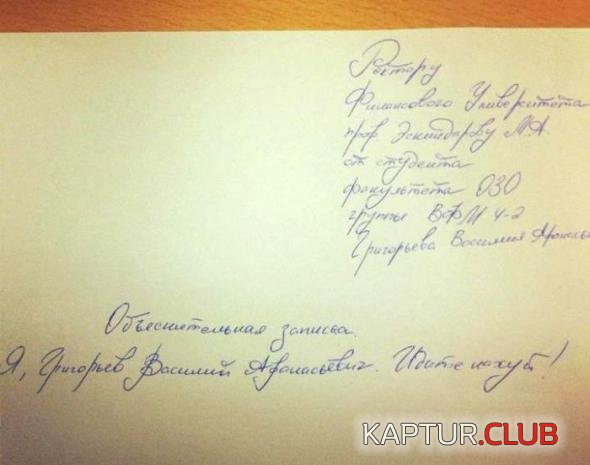 Ректору
Финансового Университета
проф. Эскиндарову М.А.
от студента
факультета ОЗО
группы ВФМ 4-2
Григорьева Василия Афанась
Объяснительная записка.
Я, Григорьев Василий Афанасьевич. Идите нахуй!
KAPTUR.CLUB